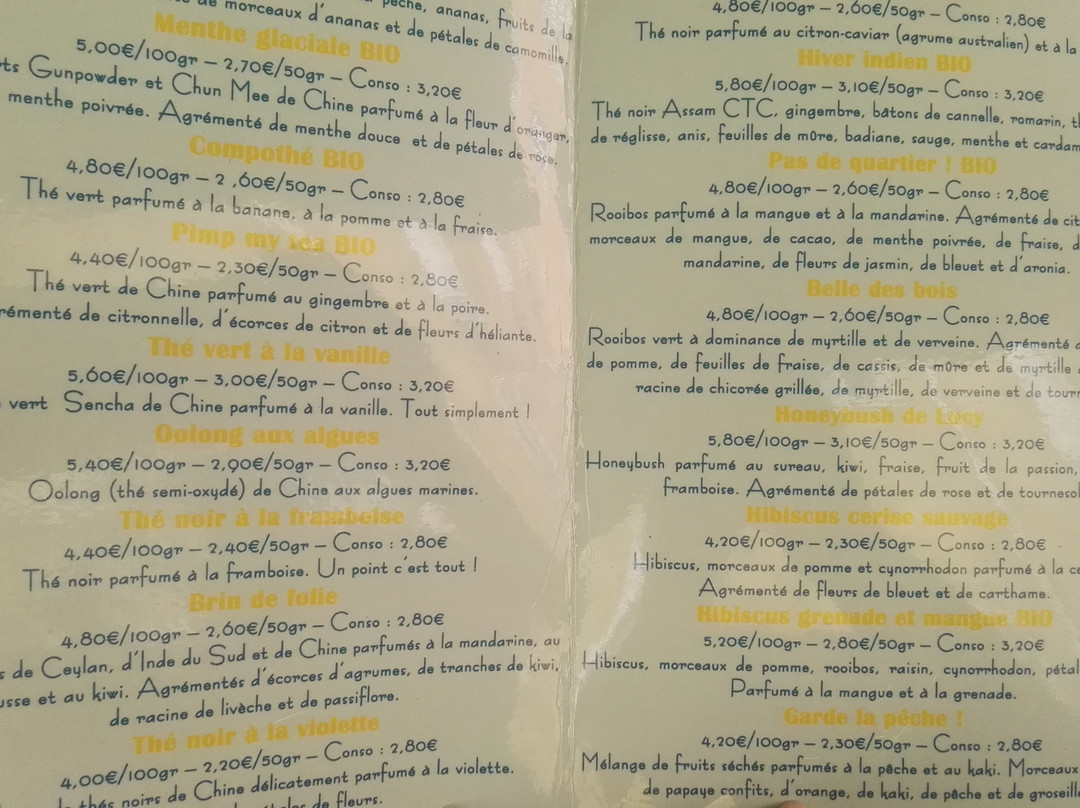 de morceaux d'ananas et de pétales de camomille.
pêche, ananas, fruits de la
Menthe glaciale BIO
5,00€/100gr – 2,70€/50gr – Conso : 3,20€
ts Gunpowder et Chun Mee de Chine parfumé à la fleur d'oranger,
menthe poivrée. Agrémenté de menthe douce et de pétales de rose.
Compothé BIO
4,80€/100gr – 2 ,60€/50gr – Conso : 2,80€
Thé vert parfumé à la banane, à la pomme et à la fraise.
Pimp my tea BIO
4,40€/100gr – 2,30€/50gr – Conso : 2,80€
Thé vert de Chine parfumé au gingembre et à la poire.
rémenté de citronnelle, d'écorces de citron et de fleurs d'héliante.
Thé vert à la vanille
5,60€/100gr – 3,00€/50gr – Conso : 3,20€
vert Sencha de Chine parfumé à la vanille. Tout simplement !
Oolong aux algues
5,40€/100gr – 2,90€/50gr – Conso : 3,20€
Oolong (thé semi-oxydé) de Chine aux algues marines.
Thé noir à la framboise
4,40€/100gr – 2,40€/50gr – Conso : 2,80€
Thé noir parfumé à la framboise. Un point c'est tout !
Brin de folie
4,80€/100gr – 2,60€/50gr – Conso : 2,80€
s de Ceylan, d'Inde du Sud et de Chine parfumés à la mandarine, au
usse et au kiwi. Agrémentés d'écorces d'agrumes, de tranches de kiwi,
de racine de livèche et de passiflore.
Thé noir à la violette
4,00€/100gr – 2,20€/50gr – Conso : 2,80€
thés noirs de Chine délicatement parfumé à la violette.
de fleurs.
4,80€/100gr – 2,60€/50gr – Conso : 2,80€
Thé noir parfumé au citron-caviar (agrume australien) et à la
Hiver indien BIO
5,80€/100gr – 3,10€/50gr – Conso : 3,20€
Thé noir Assam CTC, gingembre, bâtons de cannelle, romarin, th
de réglisse, anis, feuilles de mûre, badiane, sauge, menthe et cardam
Pas de quartier ! BIO
4,80€/100gr – 2,60€/50gr – Conso : 2,80€
Rooibos parfumé à la mangue et à la mandarine. Agrémenté de cit
morceaux de mangue, de cacao, de menthe poivrée, de fraise, d
mandarine, de fleurs de jasmin, de bleuet et d'aronia.
Belle des bois
4,80€/100gr – 2,60€/50gr – Conso : 2,80€
Rooibos vert à dominance de myrtille et de verveine. Agrémenté d
de pomme, de feuilles de fraise, de cassis, de mûre et de myrtille
racine de chicorée grillée, de myrtille, de verveine et de tourn
Honeybush de Lucy
5,80€/100gr – 3,10€/50gr – Conso : 3,20€
Honeybush parfumé au sureau, kiwi, fraise, fruit de la passion,
framboise. Agrémenté de pétales de rose et de tournesol
Hibiscus cerise sauvage
4,20€/100gr – 2,30€/50gr – Conso : 2,80€
Hibiscus, morceaux de pomme et cynorrhodon parfumé à la ce
Agrémenté de fleurs de bleuet et de carthame.
Hibiscus grenade et mangue BIO
5,20€/100gr – 2,80€/50gr – Conso : 3,20€
Hibiscus, morceaux de pomme, rooibos, raisin, cynorrhodon, pétal
Parfumé à la mangue et à la grenade.
Garde la pêche !
4,20€/100gr – 2,30€/50gr – Conso : 2,80€
Mélange de fruits séchés parfumés à la pêche et au kaki. Morceaux
de papaye confits, d'orange, de kaki, de pêche et de groseill